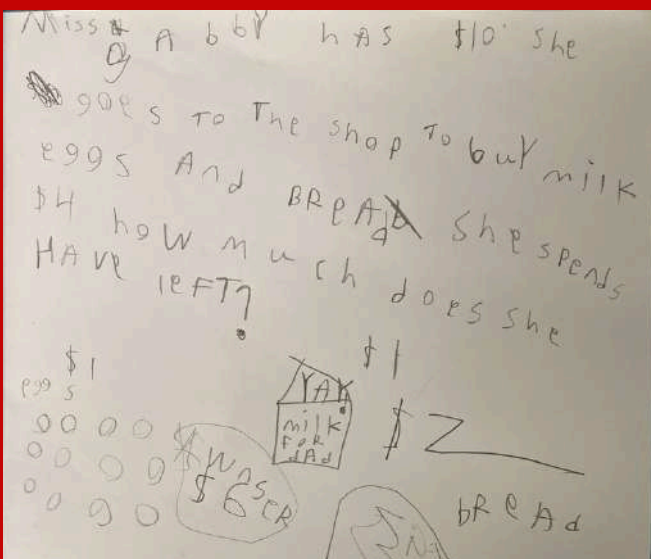 Miss g Abby has $10 she
goes to The shop To buy milk
eggs And BReAd she spends
$4 how much does she
HAve leFT?
$1
eggs
YAY!
milk
FoR
dAd
$1
$2
bReAd
AwnseR
$6